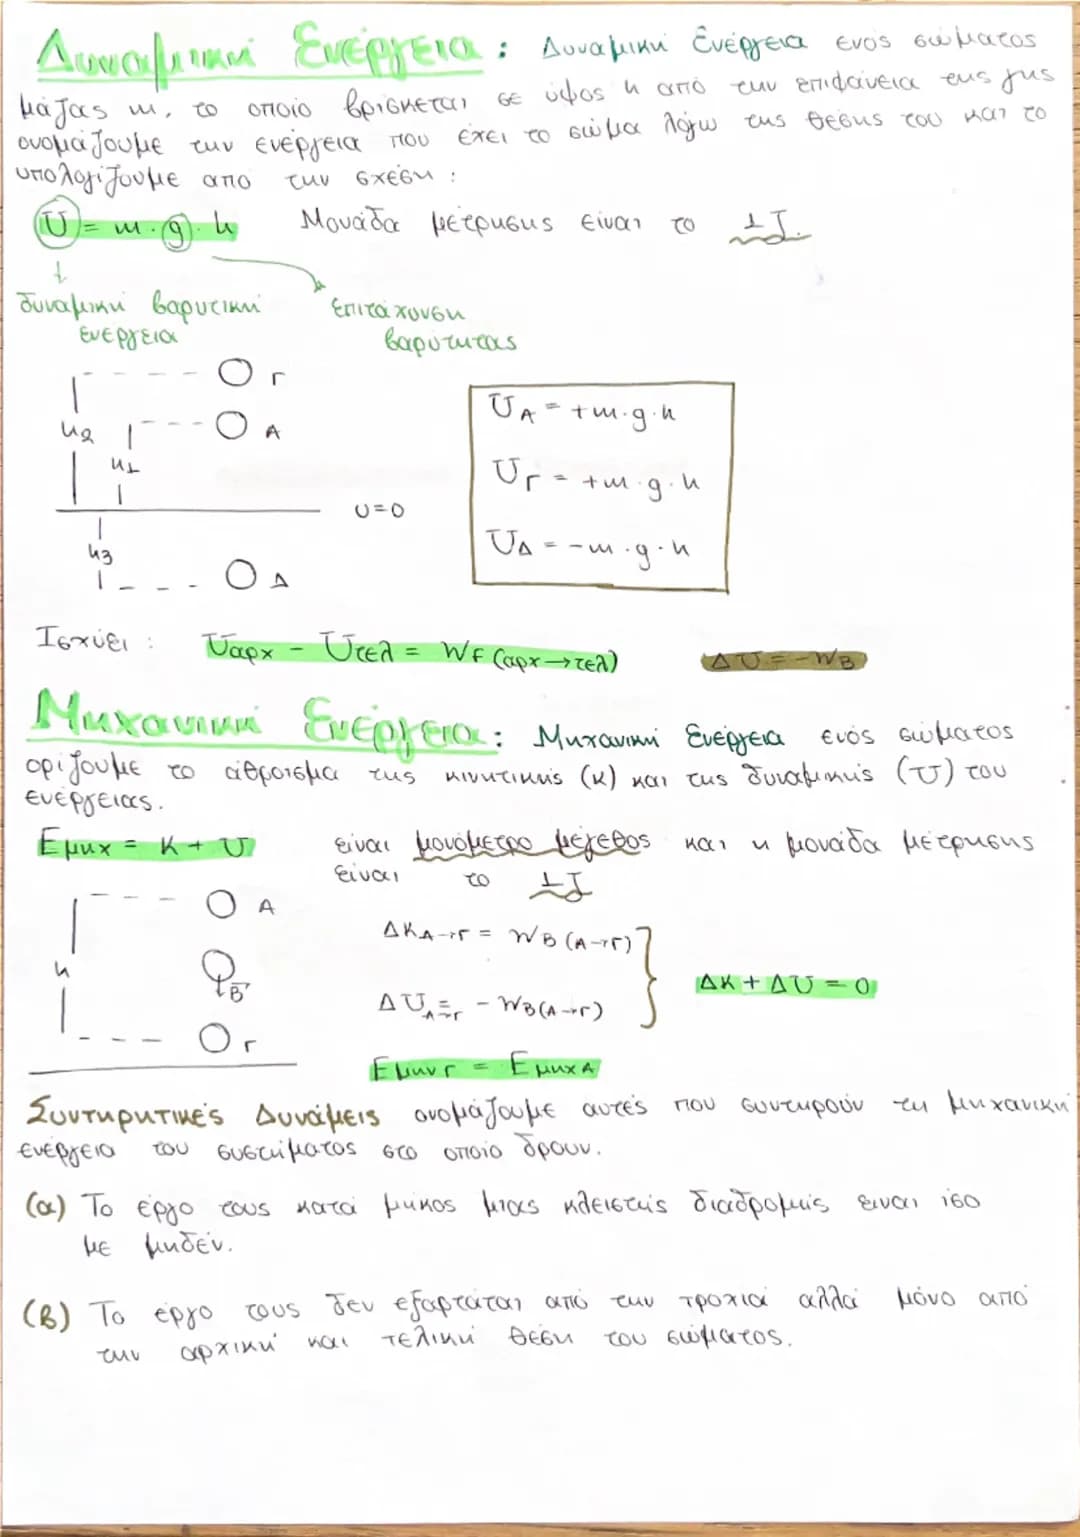 Δυναμική Ενέργεια: Δυναμική Ενέργεια ενός σώματος
μάζας m, το οποίο βρίσκεται σε ύψος h από την επιφάνεια της γης
ονομάζουμε την ενέργεια που έχει το σώμα λόγω της θέσης του και το
υπολογίζουμε απο την σχέση :
U = m·g·h Μονάδα μέτρησης είναι το 1J.
δυναμική βαρυτική ενέργεια
επιτάχυνση βαρύτητας
Γ
h2
A
h1
U=0
h3
Δ
UA = +m·g·h
UΓ = +m·g·h
UΔ = -m·g·h
Ισχύει : Uαρχ - Uτελ = WF (αρχ→τελ) ΔU = -WB
Μηχανική Ενέργεια: Μηχανική Ενέργεια ενός σώματος
ορίζουμε το άθροισμα της κινητικής (Κ) και της δυναμικής (U) του
ενέργειας.
Εμηχ = Κ + U είναι μονόμετρο μέγεθος και η μονάδα μέτρησης
είναι το 1J
A
h
B
Γ
ΔΚΑ→Γ = WB (Α→Γ)
ΔUΑ→Γ = - WB(Α→Γ)
ΔΚ + ΔU = 0
Εμηχ Γ = Εμηχ Α
Συντηρητικές Δυνάμεις ονομάζουμε αυτές που συντηρούν τη μηχανική
ενέργεια του συστήματος στο οποίο δρουν.
(α) Το έργο τους κατά μήκος μιας κλειστής διαδρομής είναι ίσο
με μηδέν.
(β) Το έργο τους δεν εξαρτάται από την τροχιά αλλά μόνο από
την αρχική και τελική θέση του σώματος.